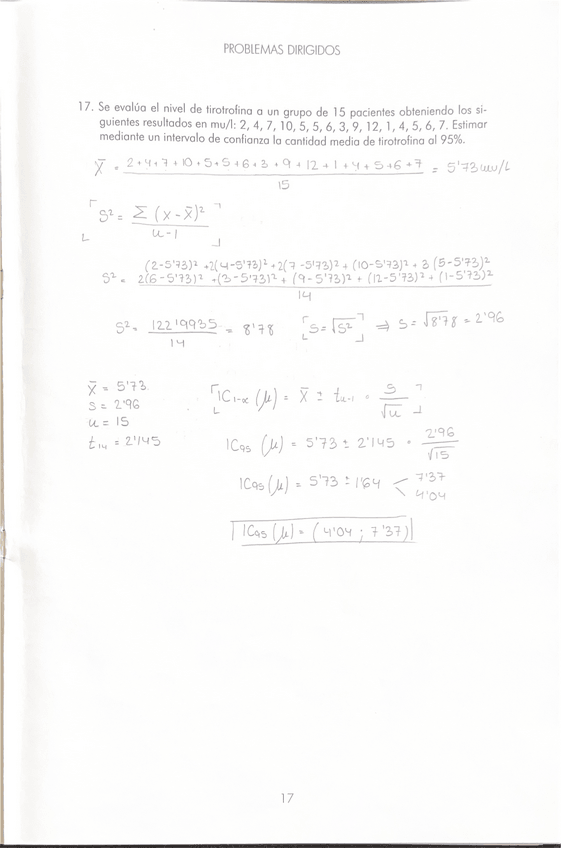 PROBLEMAS DIRIGIDOS
17. Se evalúa el nivel de tirotrofina a un grupo de 15 pacientes obteniendo los si-
guientes resultados en mu/l: 2, 4, 7, 10, 5, 5, 6, 3, 9, 12, 1, 4, 5, 6, 7. Estimar
mediante un intervalo de confianza la cantidad media de tirotrofina al 95%.
X̄ = 2+4+7+10+5+5+6+3+9+12+1+4+5+6+7 / 15 = 5'73 mu/L
S² = Σ (x-x̄)² / n-1
S² = (2-5'73)²+2(4-5'73)²+2(7-5'73)²+(10-5'73)²+3(5-5'73)²
2(6-5'73)²+(3-5'73)²+(9-5'73)²+(12-5'73)²+(1-5'73)²
14
S² = 122'9935 / 14 = 8'78 [S=√S²] ⇒ S=√8'78 = 2'96
X̄ = 5'73.
S = 2'96
n = 15
t₁₄ = 2'145
[IC₁₋α (μ) = X̄ ± tₙ₋₁ · S/√n]
IC₉₅ (μ) = 5'73 ± 2'145 · 2'96/√15
IC₉₅ (μ) = 5'73 ± 1'64 < 7'37
4'04
IC₉₅ (μ) = (4'04 ; 7'37)
17